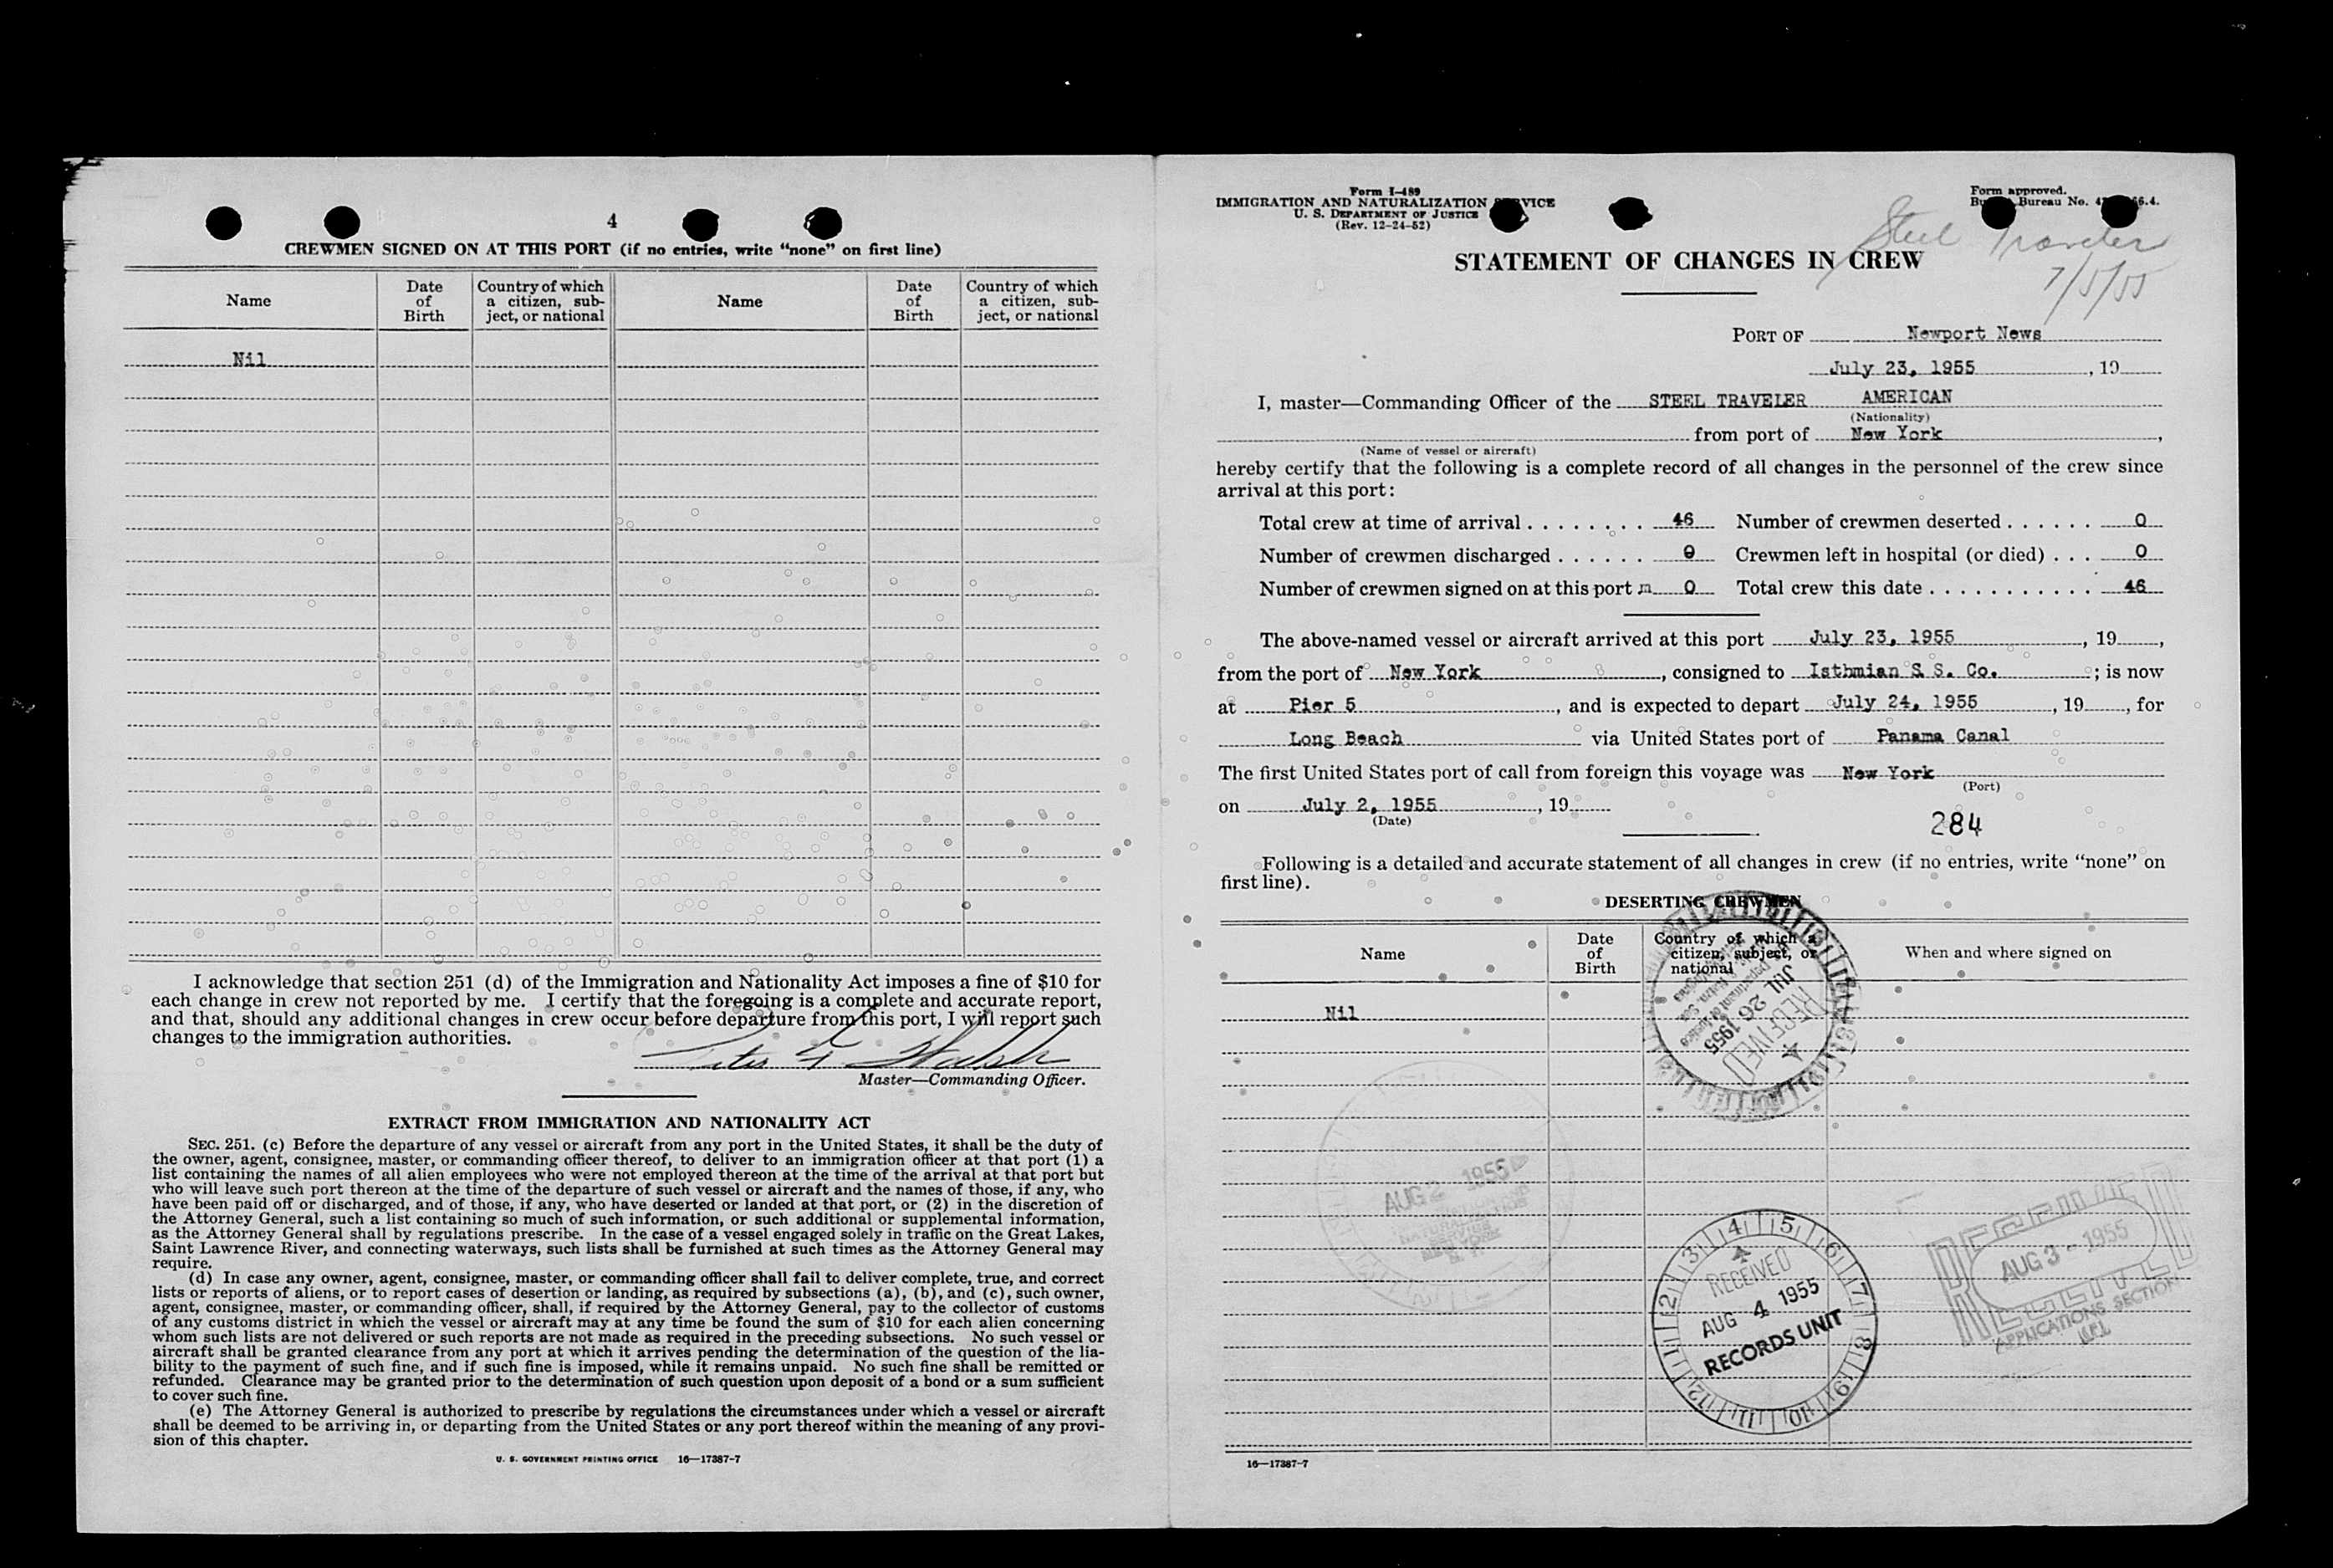 4
CREWMEN SIGNED ON AT THIS PORT (if no entries, write “none” on first line)
Name
Date of Birth
Country of which a citizen, sub-ject, or national
Name
Date of Birth
Country of which a citizen, sub-ject, or national
Nil
I acknowledge that section 251 (d) of the Immigration and Nationality Act imposes a fine of $10 for
each change in crew not reported by me. I certify that the foregoing is a complete and accurate report,
and that, should any additional changes in crew occur before departure from this port, I will report such
changes to the immigration authorities.
Master—Commanding Officer.
EXTRACT FROM IMMIGRATION AND NATIONALITY ACT
SEC. 251. (c) Before the departure of any vessel or aircraft from any port in the United States, it shall be the duty of
the owner, agent, consignee, master, or commanding officer thereof, to deliver to an immigration officer at that port (1) a
list containing the names of all alien employees who were not employed thereon at the time of the arrival at that port but
who will leave such port thereon at the time of the departure of such vessel or aircraft and the names of those, if any, who
have been paid off or discharged, and of those, if any, who have deserted or landed at that port, or (2) in the discretion of
the Attorney General, such a list containing so much of such information, or such additional or supplemental information,
as the Attorney General shall by regulations prescribe. In the case of a vessel engaged solely in traffic on the Great Lakes,
Saint Lawrence River, and connecting waterways, such lists shall be furnished at such times as the Attorney General may
require.
(d) In case any owner, agent, consignee, master, or commanding officer shall fail to deliver complete, true, and correct
lists or reports of aliens, or to report cases of desertion or landing, as required by subsections (a), (b), and (c), such owner,
agent, consignee, master, or commanding officer, shall, if required by the Attorney General, pay to the collector of customs
of any customs district in which the vessel or aircraft may at any time be found the sum of $10 for each alien concerning
whom such lists are not delivered or such reports are not made as required in the preceding subsections. No such vessel or
aircraft shall be granted clearance from any port at which it arrives pending the determination of the question of the lia-
bility to the payment of such fine, and if such fine is imposed, while it remains unpaid. No such fine shall be remitted or
refunded. Clearance may be granted prior to the determination of such question upon deposit of a bond or a sum sufficient
to cover such fine.
(e) The Attorney General is authorized to prescribe by regulations the circumstances under which a vessel or aircraft
shall be deemed to be arriving in, or departing from the United States or any port thereof within the meaning of any provi-
sion of this chapter.
U. S. GOVERNMENT PRINTING OFFICE 16—17387-7
Form I-489
IMMIGRATION AND NATURALIZATION
U. S. DEPARTMENT OF JUSTICE
(Rev. 12-24-52)
Form approved.
Bureau No.
Steel Traveler
7/5/55
STATEMENT OF CHANGES IN CREW
PORT OF Newport News
July 23, 1955, 19
I, master—Commanding Officer of the STEEL TRAVELER AMERICAN
(Nationality)
from port of New York,
(Name of vessel or aircraft)
hereby certify that the following is a complete record of all changes in the personnel of the crew since
arrival at this port:
Total crew at time of arrival . . . . . . . . 46 Number of crewmen deserted . . . . . . 0
Number of crewmen discharged . . . . . . 0 Crewmen left in hospital (or died) . . . 0
Number of crewmen signed on at this port 0 Total crew this date . . . . . . . . . . . . 46
The above-named vessel or aircraft arrived at this port July 23, 1955, 19,
from the port of New York, consigned to Isthmian S. S. Co.; is now
at Pier 5, and is expected to depart July 24, 1955, 19, for
Long Beach via United States port of Panama Canal
The first United States port of call from foreign this voyage was New York
(Port)
on July 2, 1955, 19
(Date)
284
Following is a detailed and accurate statement of all changes in crew (if no entries, write “none” on
first line).
DESERTING CREWMEN
Name
Date of Birth
Country of which a citizen, subject, or national
When and where signed on
Nil
RECEIVED
JUL 26 1955
AUG 2 1955
NEW YORK
4 5 6 7 8 9 10 11 12 1 2 3
RECEIVED
AUG 4 1955
RECORDS UNIT
RECEIVED
AUG 3 - 1955
APPLICATIONS SECTION
16—17387-7